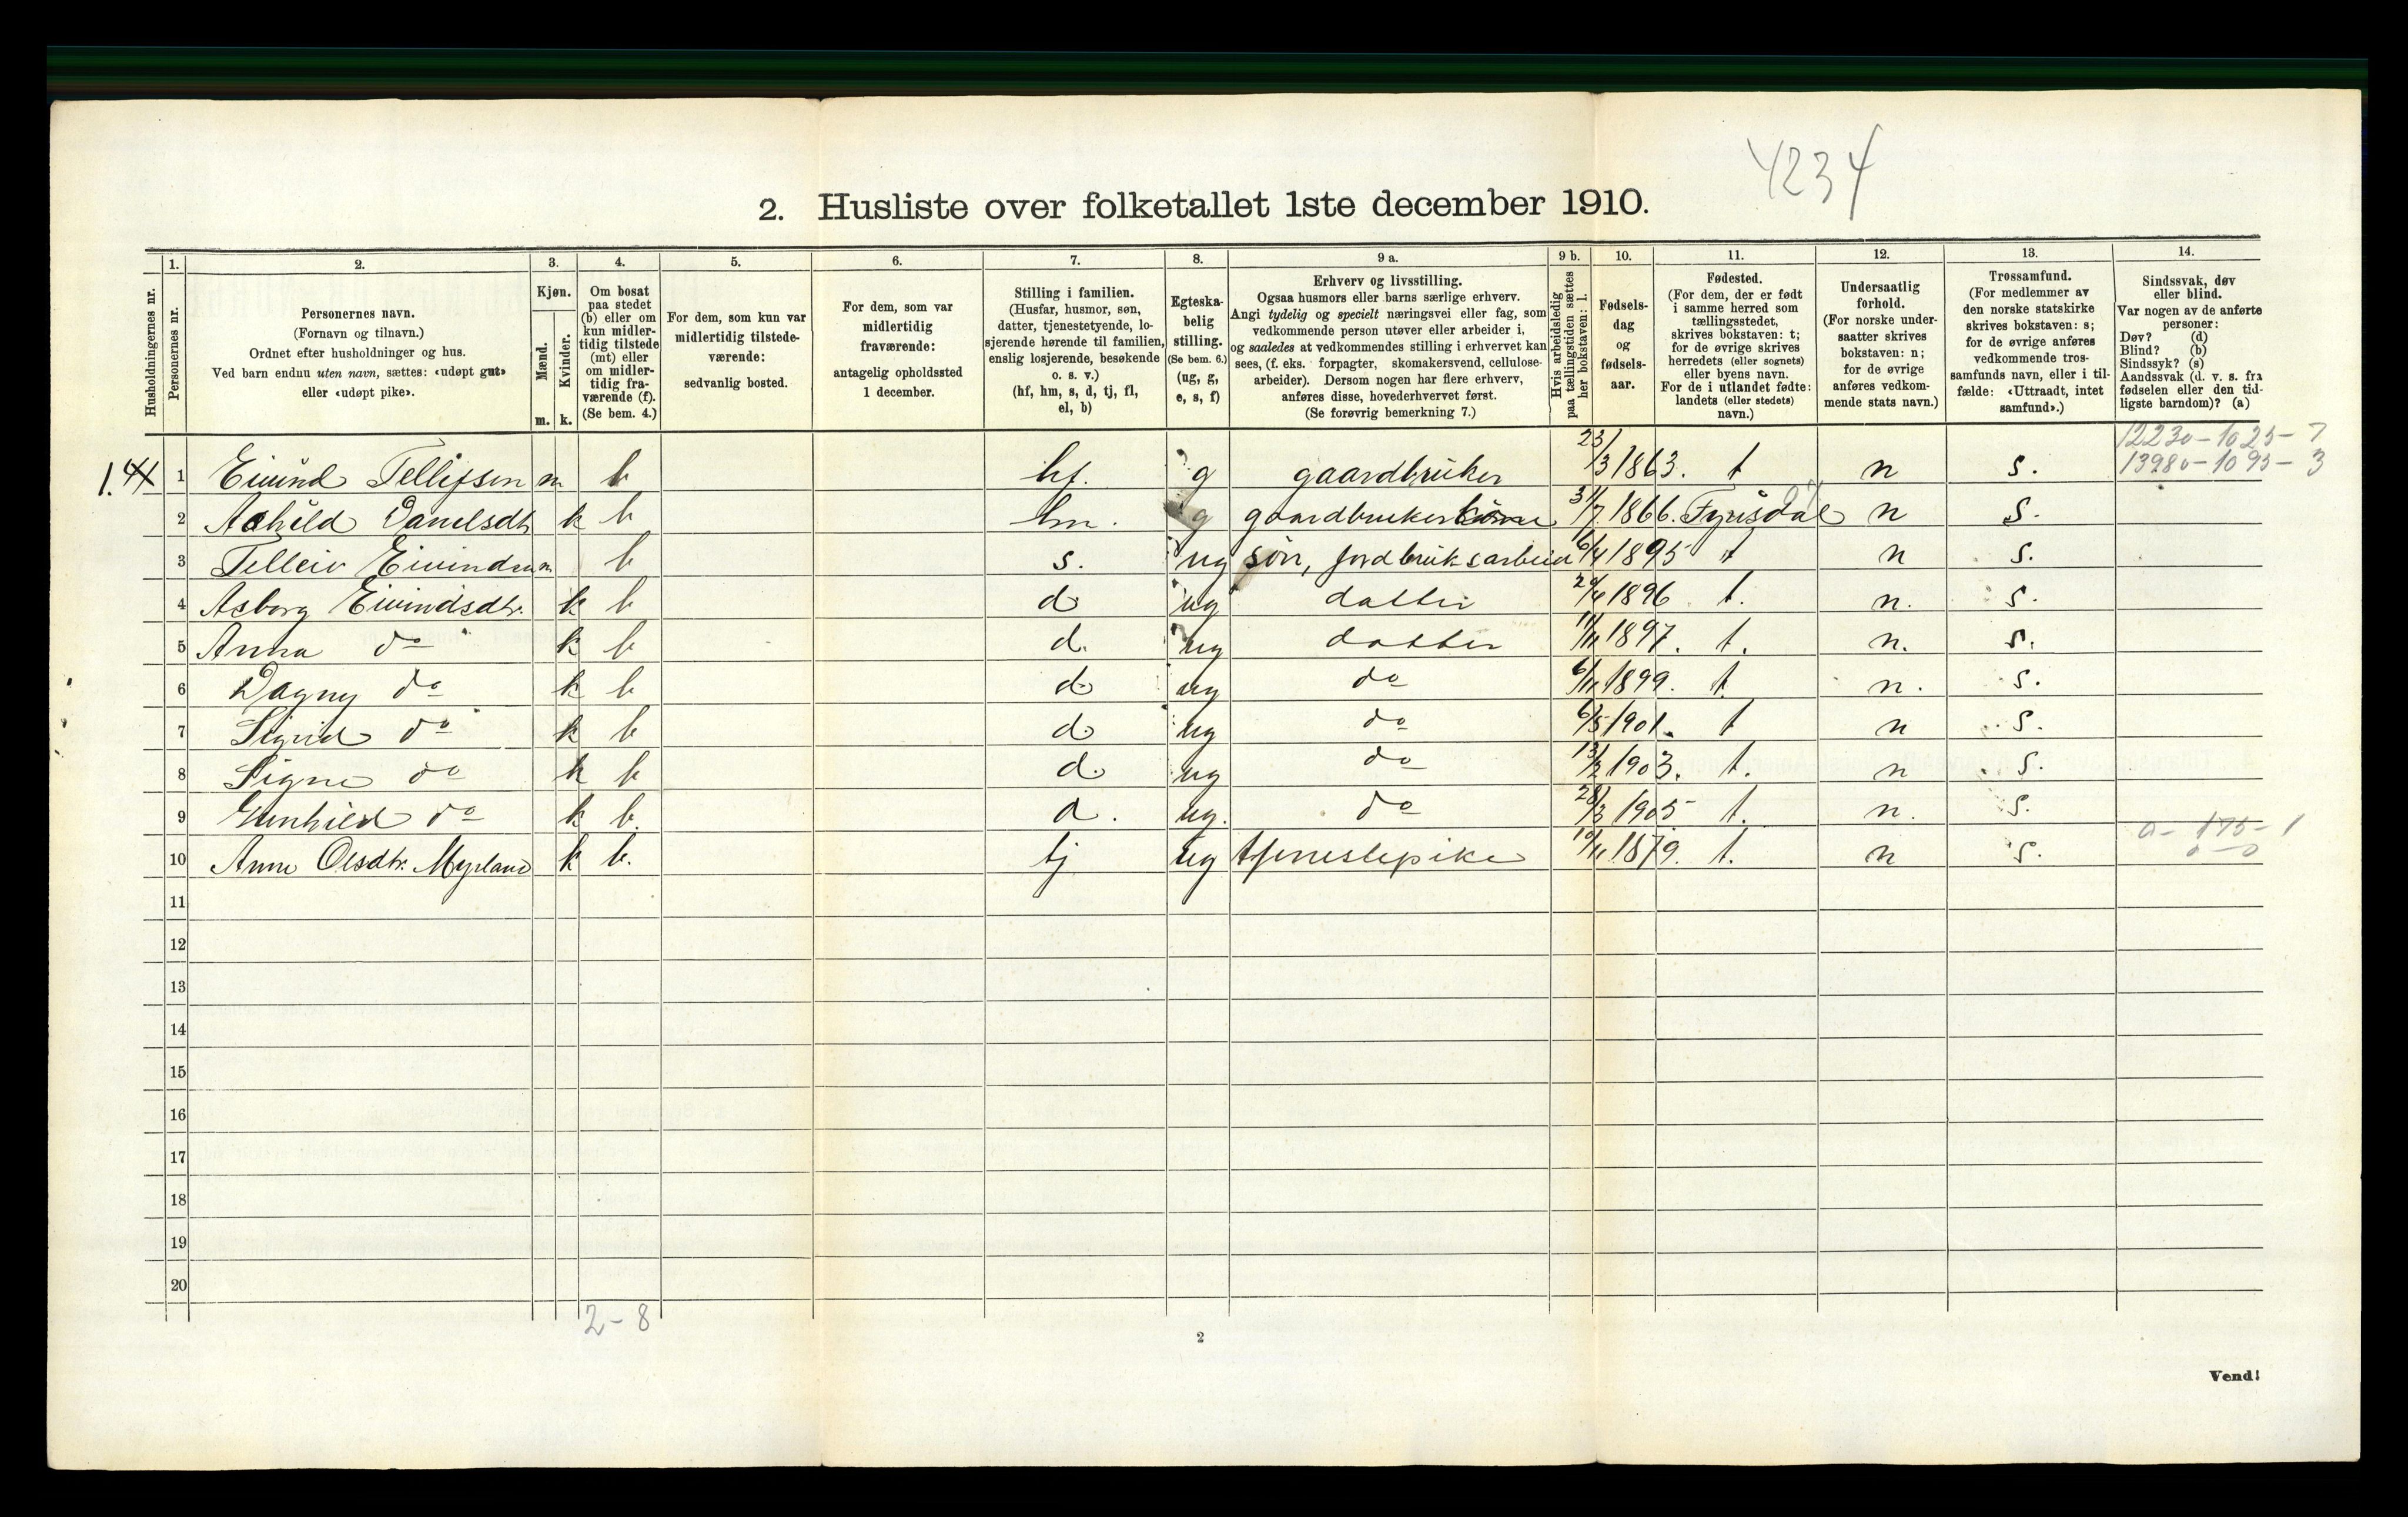 4234
2. Husliste over folketallet 1ste december 1910.
1. 2. 3. 4. 5. 6. 7. 8. 9 a. 9 b. 10. 11. 12. 13. 14.
Husholdningernes nr.
Personernes nr.
Personernes navn.
(Fornavn og tilnavn.)
Ordnet efter husholdninger og hus.
Ved barn endnu uten navn, sættes: «udøpt gut»
eller «udøpt pike».
Kjøn.
Mænd.
Kvinder.
m. k.
Om bosat
paa stedet
(b) eller om
kun midler-
tidig tilstede
(mt) eller
om midler-
tidig fra-
værende (f).
(Se bem. 4.)
For dem, som kun var
midlertidig tilstede-
værende:
sedvanlig bosted.
For dem, som var
midlertidig
fraværende:
antagelig opholdssted
1 december.
Stilling i familien.
(Husfar, husmor, søn,
datter, tjenestetyende, lo-
sjerende hørende til familien,
enslig losjerende, besøkende
o. s. v.)
(hf, hm, s, d, tj, fl,
el, b)
Egteska-
belig
stilling.
(Se bem. 6.)
(ug, g,
e, s, f)
Erhverv og livsstilling.
Ogsaa husmors eller barns særlige erhverv.
Angi tydelig og specielt næringsvei eller fag, som
vedkommende person utøver eller arbeider i,
og saaledes at vedkommendes stilling i erhvervet kan
sees, (f. eks. forpagter, skomakersvend, cellulose-
arbeider). Dersom nogen har flere erhverv,
anføres disse, hovederhvervet først.
(Se forøvrig bemerkning 7.)
Hvis arbeidsledig
paa tællingstiden sættes
her bokstaven: l.
Fødsels-
dag
og
fødsels-
aar.
Fødested.
(For dem, der er født
i samme herred som
tællingsstedet,
skrives bokstaven: t;
for de øvrige skrives
herredets (eller sognets)
eller byens navn.
For de i utlandet fødte:
landets (eller stedets)
navn.)
Undersaatlig
forhold.
(For norske under-
saatter skrives
bokstaven: n;
for de øvrige
anføres vedkom-
mende stats navn.)
Trossamfund.
(For medlemmer av
den norske statskirke
skrives bokstaven: s;
for de øvrige anføres
vedkommende tros-
samfunds navn, eller i til-
fælde: «Uttraadt, intet
samfund».)
Sindssvak, døv
eller blind.
Var nogen av de anførte
personer:
Døv? (d)
Blind? (b)
Sindssyk? (s)
Aandssvak (d. v. s. fra
fødselen eller den tid-
ligste barndom)? (a)
12230-1025-7
13980-1095-3
1. 1 Eivind Tellefsen m b hf. g gaardbruker 23/3 1863. t n s.
2 Danelsdtr k b hm. g gaardbrukerkone 31/7 1866. Fyrisdal n s.
3 Telleiv Eivindsen m b s. ug søn, jordbruksarbeider 16/4 1895 t n s.
4 Asborg Eivindsdtr. k b d ug datter 29/4 1896 t. n. s.
5 Anna do k b d. ug datter 11/11 1897. t. n. s.
6 Dagny do k b d ug do 6/11 1899. t. n. s.
7 Sigrid do k b d ug do 6/5 1901. t n s.
8 Signe do k b d. ug do 13/2 1903. t. n s.
9 Gunhild do k b. d. ug. do 28/3 1905 t. n. s.
a- 175-1
0-0
10 Anne Olsdtr. Myrland k b. tj ug tjenestepike 10/11 1879. t. n s.
11
12
13
14
15
16
17
18
19
20
2-8
2
Vend!